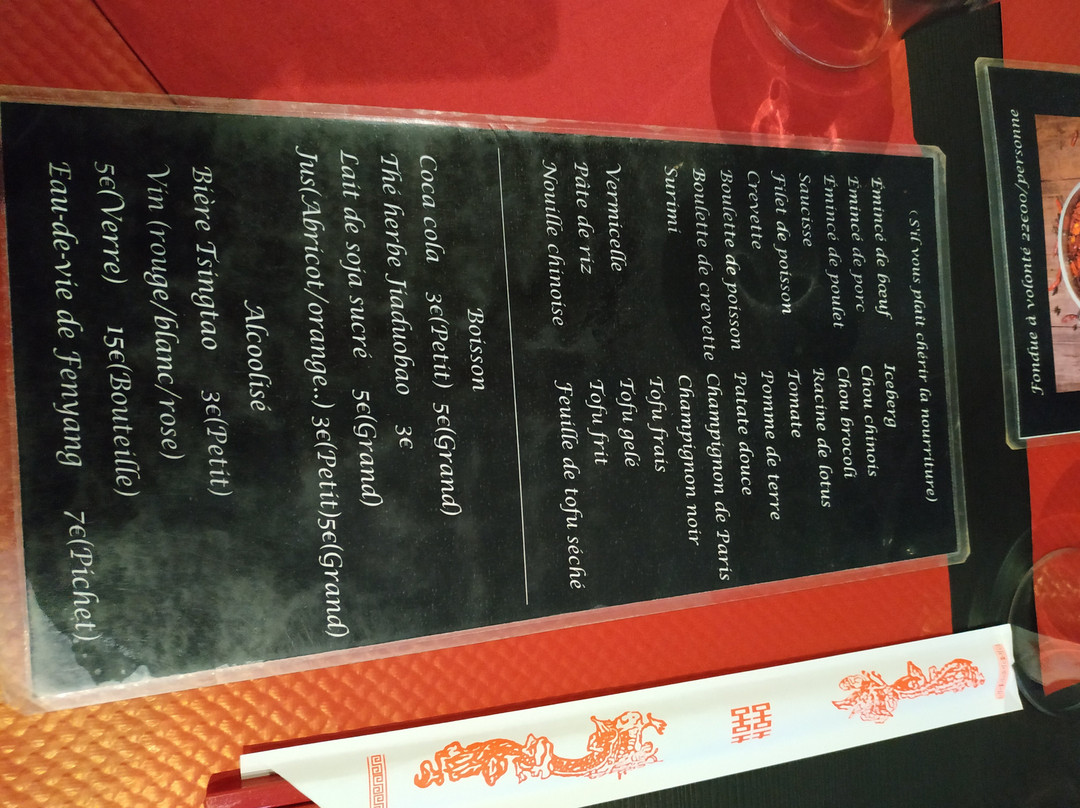 (S'il vous plaît chérir la nourriture)
Émincé de bœuf
Émincé de porc
Émincé de poulet
Saucisse
Filet de poisson
Crevette
Boulette de poisson
Boulette de crevette
Surimi
Vermicelle
Pâte de riz
Nouille chinoise
Iceberg
Chou chinois
Chou brocoli
Racine de lotus
Tomate
Pomme de terre
Patate douce
Champignon de Paris
Champignon noir
Tofu frais
Tofu gelé
Tofu frit
Feuille de tofu séché
Boisson
Coca cola 3€(Petit) 5€(Grand)
Thé herbe Jiaduobao 3€
Lait de soja sucré 5€(Grand)
Jus(Abricot/orange..) 3€(Petit)5€(Grand)
Alcoolisé
Bière Tsingtao 3€(Petit)
Vin (rouge/blanc/rose)
5€(Verre) 15€(Bouteille)
Eau-de-vie de Fenyang 7€(Pichet)
Fondue à volonté 22€00/personne
囍